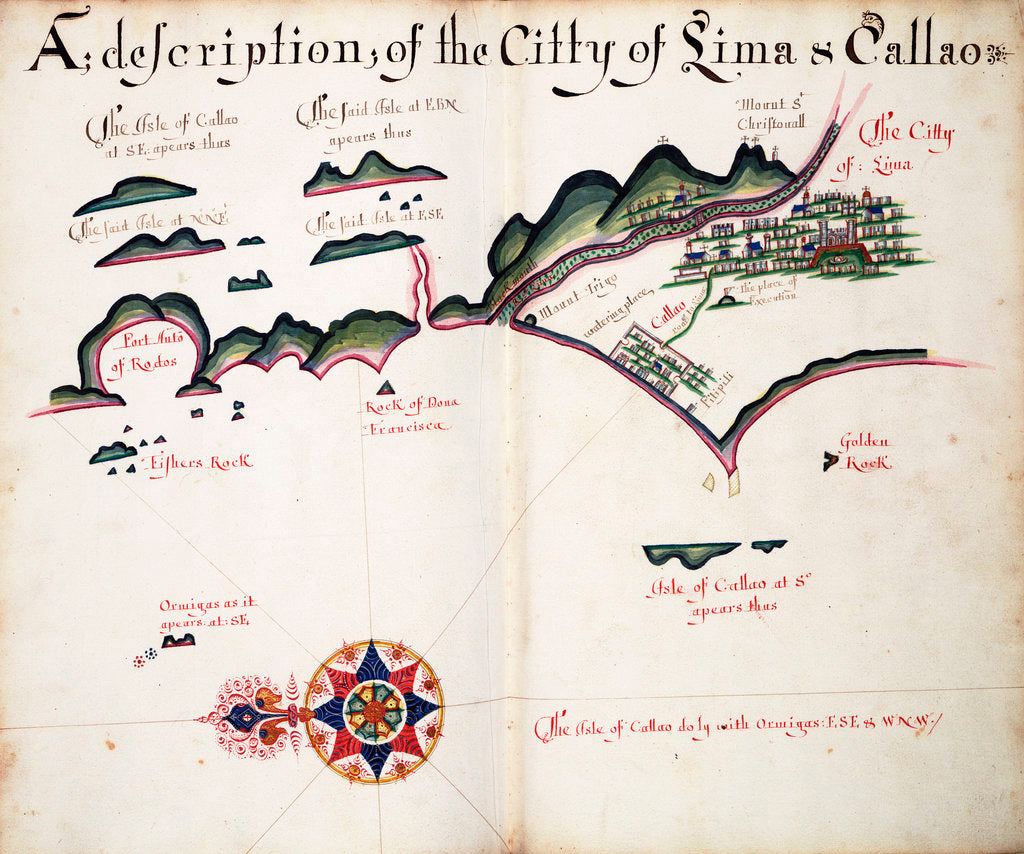 A; description; of the Citty of Lima & Callao
The Isle of Callao
at SE: apears thus
The said Isle at EBN
apears thus
Mount St
Christouall
The Citty
of: Lima
The said Isle at NNE
The said Isle at ESE
Mount Trigo
watering place
Callao
the place of
Execution
Port Anto
of Rodos
Filipili
Rock of Dona
Francisca
Fishers Rock
Golden
Rock
Isle of Callao at So
apears thus
Ormigas as it
apears: at: SE
The Isle of Callao do ly with Ormigas: ESE & WNW